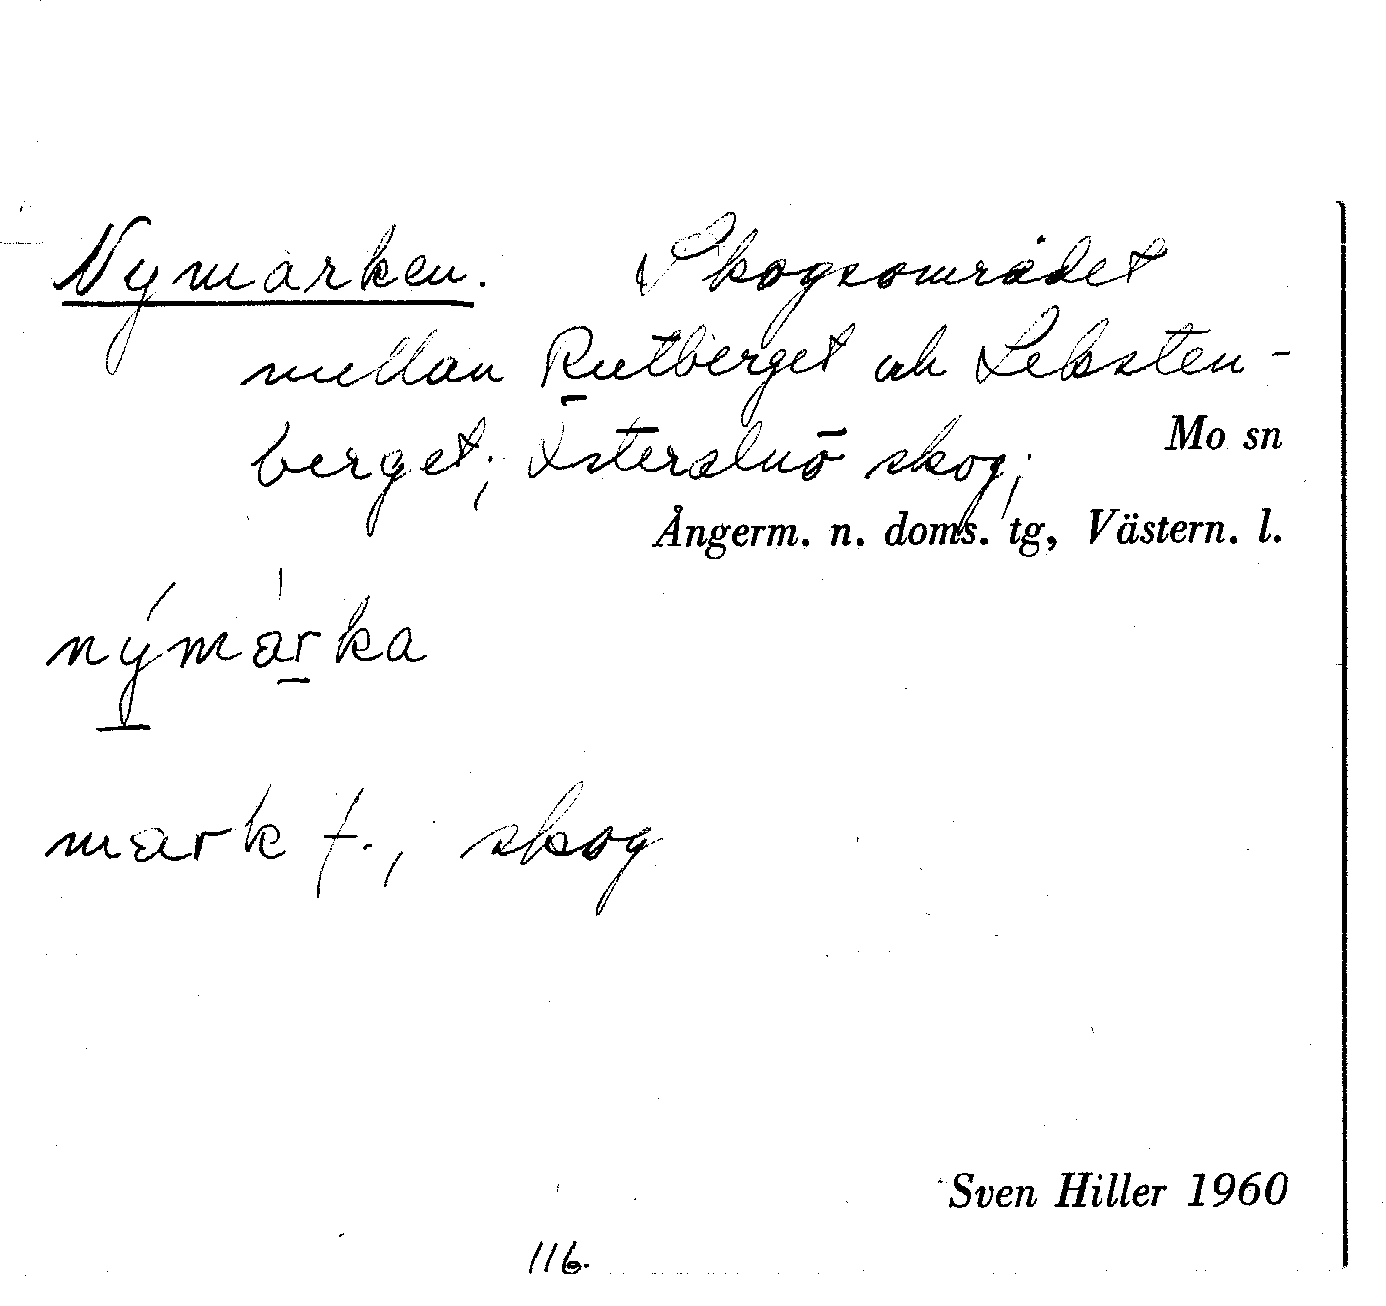 Nymarken. Skogsområdet
mellan Rutberget och Leksten-
berget; Österslnö skog;
Mo sn
Ångerm. n. doms. tg, Västern. l.
nýmárka
mark f., skog
Sven Hiller 1960
116.